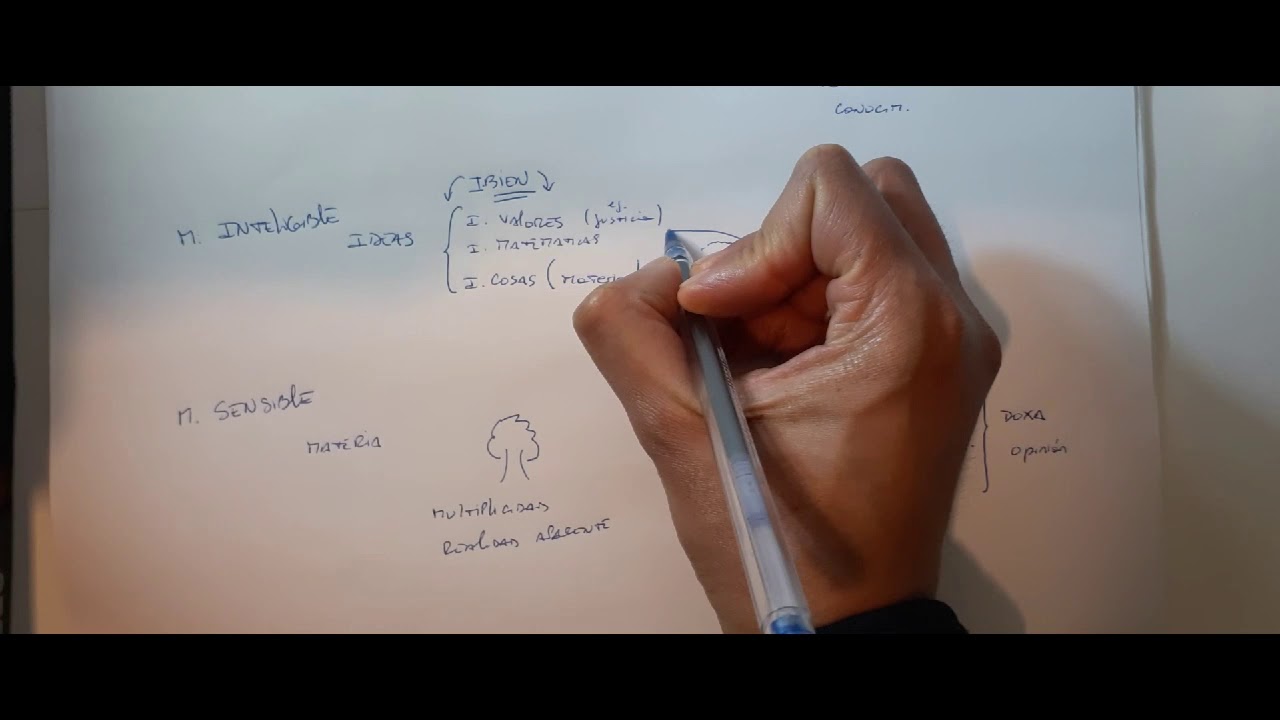 CONOCIM.
IBIEN
M. INTELIGIBLE IDEAS
I. VALORES (ej. justicia)
I. MATEMATICAS
I. COSAS (Materia
M. SENSIBLE
MATERIA
DOXA
Opinión
MULTIPLICIDAD
REALIDAD APARENTE